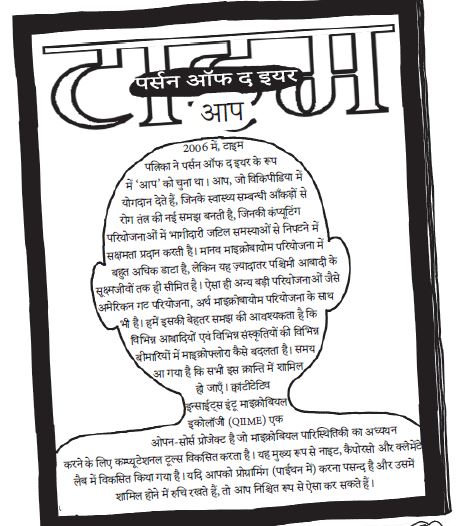 टाइम
पर्सन ऑफ द इयर
आप
2006 में, टाइम
पत्रिका ने पर्सन ऑफ द इयर के रूप
में ‘आप’ को चुना था। आप, जो विकिपीडिया में
योगदान देते हैं, जिनके स्वास्थ्य सम्बन्धी आँकड़ों से
रोग तंत्र की नई समझ बनती है, जिनकी कंप्यूटिंग
परियोजनाओं में भागीदारी जटिल समस्याओं से निपटने में
सक्षमता प्रदान करती है। मानव माइक्रोबायोम परियोजना में
बहुत अधिक डाटा है, लेकिन यह ज़्यादातर पश्चिमी आबादी के
सूक्ष्मजीवों तक ही सीमित है। ऐसा ही अन्य बड़ी परियोजनाओं जैसे
अमेरिकन गट परियोजना, अर्थ माइक्रोबायोम परियोजना के साथ
भी है। हमें इसकी बेहतर समझ की आवश्यकता है कि
विभिन्न आबादियों एवं विभिन्न संस्कृतियों की विभिन्न
बीमारियों में माइक्रोफ्लोरा कैसे बदलता है। समय
आ गया है कि सभी इस क्रान्ति में शामिल
हो जाएँ। क्वांटीटेटिव
इनसाईट्स इंटू माइक्रोबियल
इकोलॉजी (QIIME) एक
ओपन-सोर्स प्रोजेक्ट है जो माइक्रोबियल पारिस्थितिकी का अध्ययन
करने के लिए कम्प्यूटेशनल टूल्स विकसित करता है। यह मुख्य रूप से नाइट, कैपोरसो और क्लेमेंटे
लैब में विकसित किया गया है। यदि आपको प्रोग्रामिंग (पाईथन में) करना पसन्द है और उसमें
शामिल होने में रुचि रखते हैं, तो आप निश्चित रूप से ऐसा कर सकते हैं।